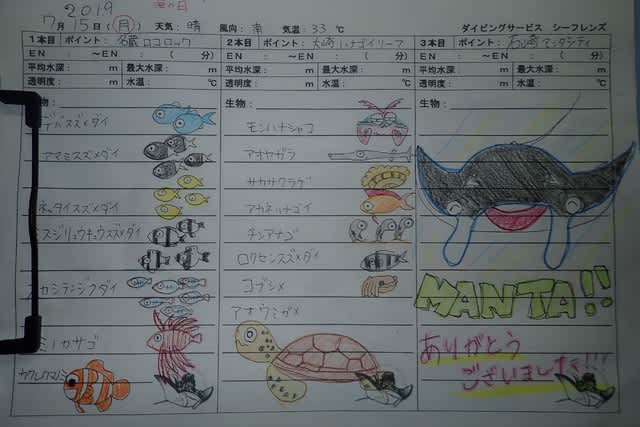 2019 海の日
7月15日(月) 天気:晴 風向:南 気温:33℃ ダイビングサービス シーフレンズ
1本目 ポイント:名蔵ロコロック
EN: ~EN: (分)
平均水深: m 最大水深: m
透明度: m 水温: ℃
デバスズメダイ
アマミスズメダイ
ネッタイスズメダイ
ミスジリュウキュウスズメダイ
スカシテンジクダイ
ミノカサゴ
カクレクマノミ
2本目 ポイント:大崎ハナゴイリーフ
EN: ~EN: (分)
平均水深: m 最大水深: m
透明度: m 水温: ℃
生物:
モンハナシャコ
アオヤガラ
サカサクラゲ
アカネハナゴイ
チンアナゴ
ロクセンスズメダイ
コブシメ
アオウミガメ
3本目 ポイント:石崎マンタシティ
EN: ~EN: (分)
平均水深: m 最大水深: m
透明度: m 水温: ℃
生物:
MANTA!!
ありがとう
ございました!!!